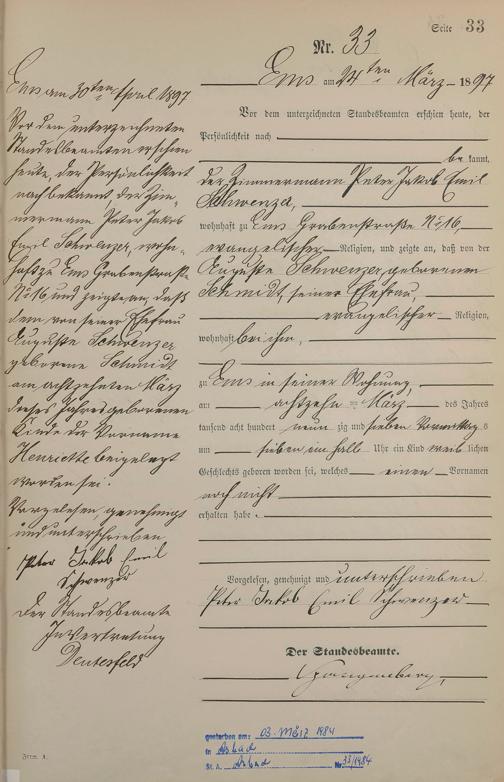 Seite 33
Nr. 33
Ems am 24ten März 1897
Vor dem unterzeichneten Standesbeamten erschien heute, der
Persönlichkeit nach
be kannt,
der Zimmermann Peter Jakob Emil
Schwenzer,
wohnhaft zu Ems Grabenstraße No 16,
evangelischer Religion, und zeigte an, daß von der
Auguste Schwenzer, geborenen
Schmidt, seiner Ehefrau,
evangelischer Religion,
wohnhaft bei ihm,
zu Ems in seiner Wohnung,
am achtzehn = März des Jahres
tausend acht hundert neun zig und sieben Vormittags
um sieben ein halb Uhr ein Kind weib lichen
Geschlechts geboren worden sei, welches einen Vornamen
noch nicht
erhalten habe.
Vorgelesen, genehmigt und unterschrieben
Peter Jakob Emil Schwenzer
Der Standesbeamte.
Ems am 30ten April 1897
Vor dem unterzeichneten
Standesbeamten erschien
heute, der Persönlichkeit
nach bekannt, der Zim-
mermann Peter Jakob
Emil Schwenzer, wohn-
haft zu Ems Grabenstraße
No 16 und zeigte an, daß
dem von seiner Ehefrau
Auguste Schwenzer
geborene Schmidt
am achtzehnten März
dieses Jahres geborenen
Kinde der Vorname
Henriette beigelegt
worden sei.
Vorgelesen, genehmigt
und unterschrieben
Peter Jakob Emil
Schwenzer
Der Standesbeamte
In Vertretung
Form. A.
gestorben am: 03. März 1984
in
St. A. Nr. 33/1984